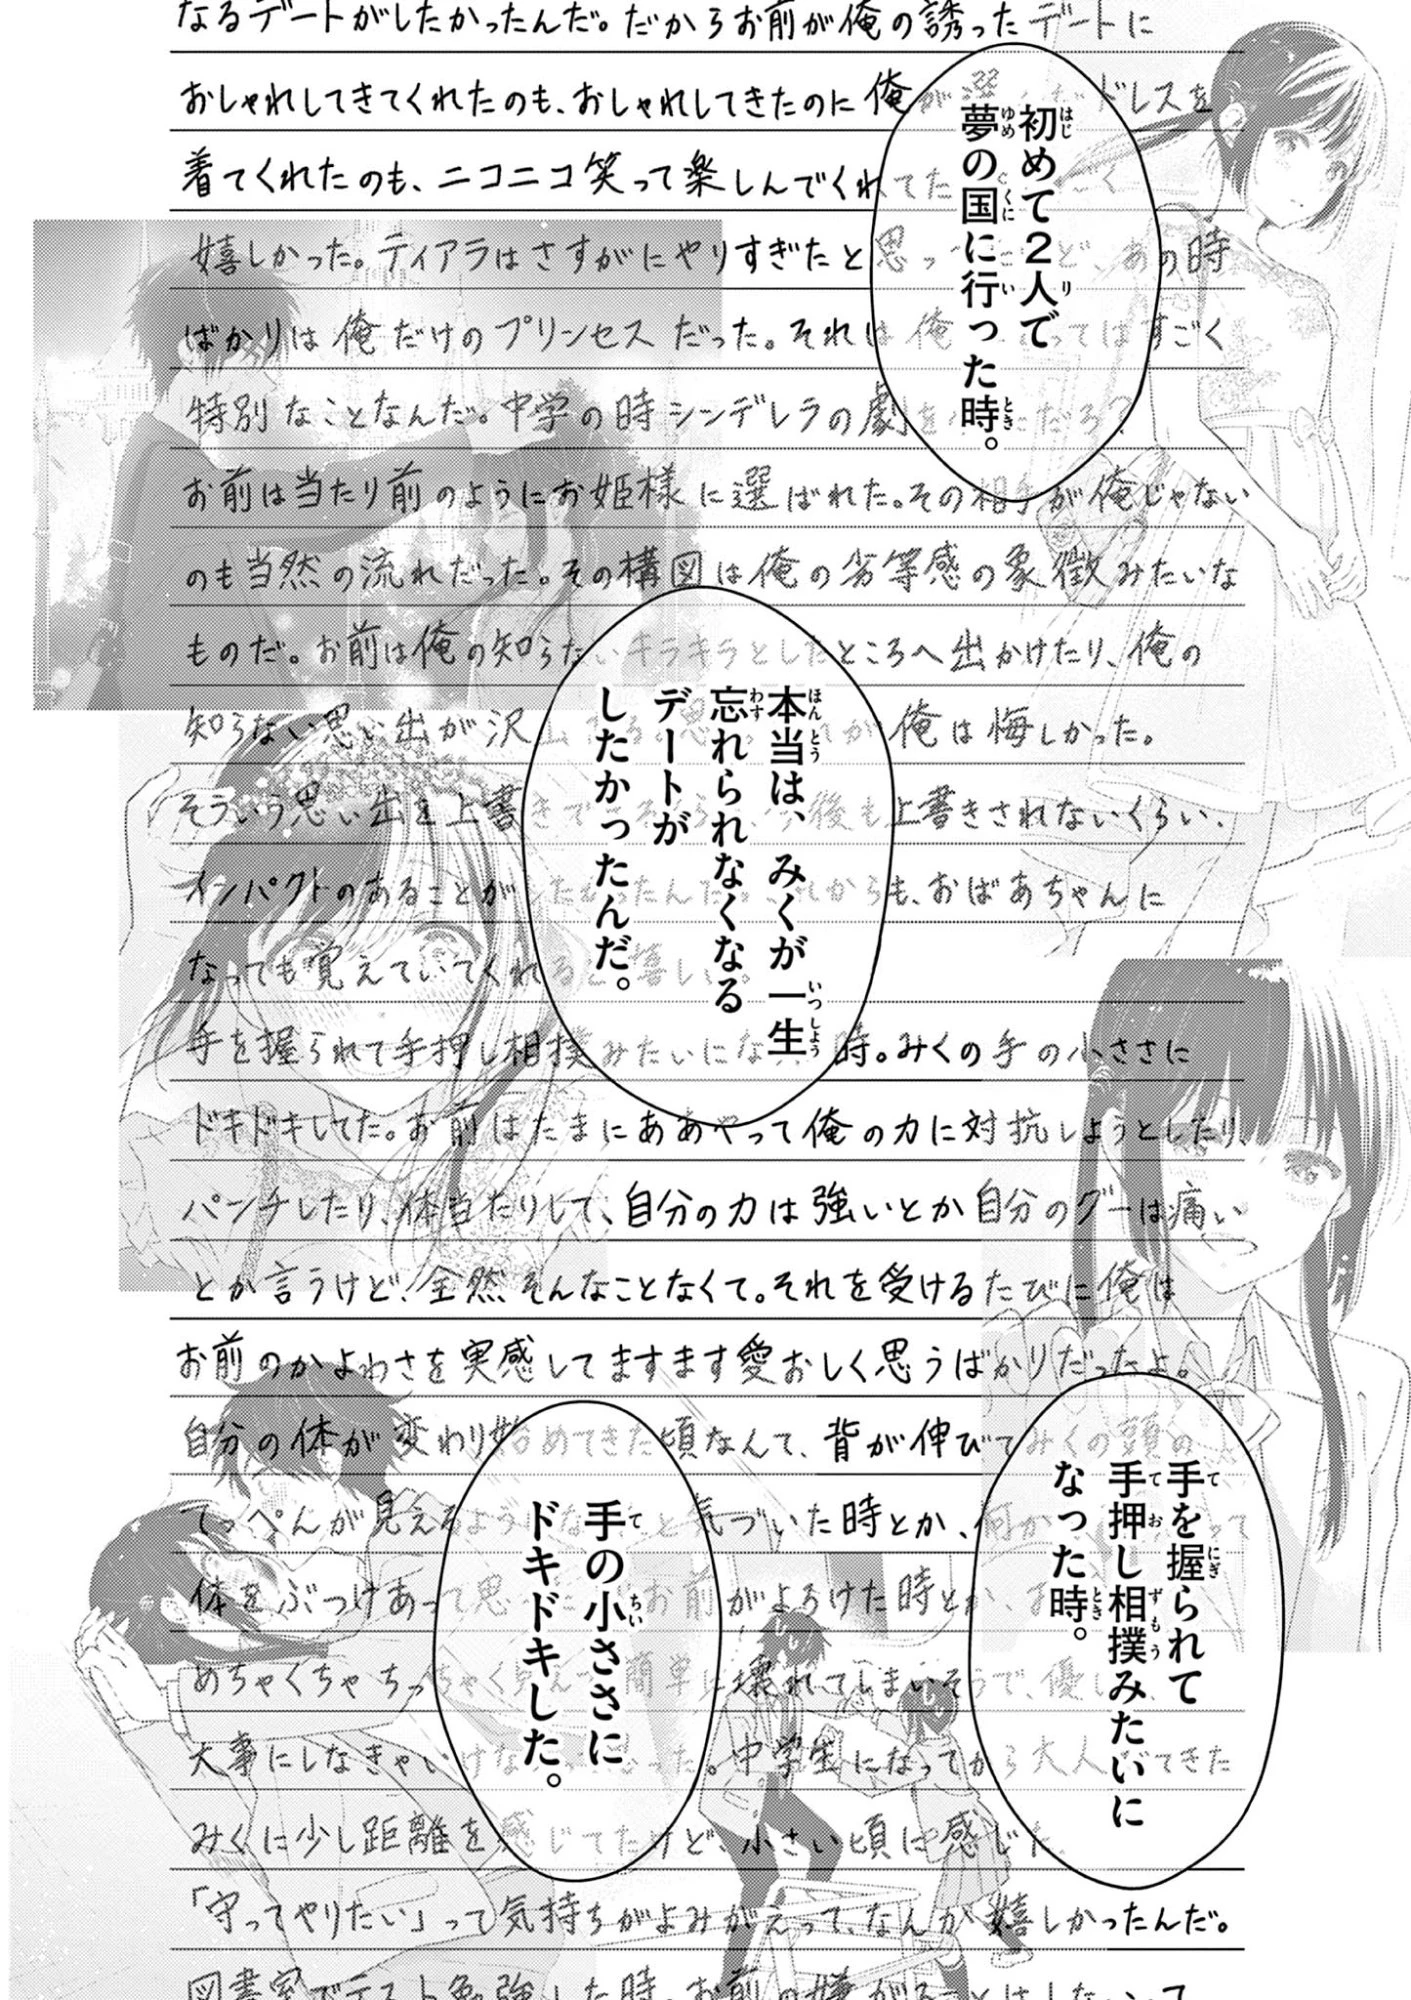 なるデートがしたかったんだ。だからお前が俺の誘ったデートに
おしゃれしてきてくれたのも、おしゃれしてきたのに俺が選んだドレスを
着てくれたのも、ニコニコ笑って楽しんでくれてた
嬉しかった。ティアラはさすがにやりすぎたと思っ あの時
ばかりは俺だけのプリンセスだった。それは俺 ってはすごく
特別なことなんだ。中学の時シンデレラの劇を だろ?
お前は当たり前のようにお姫様に選ばれた。その相手が俺じゃない
のも当然の流れだった。その構図は俺の劣等感の象徴みたいな
ものだ。お前は俺の知らないキラキラとしたところへ出かけたり、俺の
知らない思い出が沢山 が俺は悔しかった。
そういう思い出を上書きで 今後も上書きされないくらい、
インパクトのあることがしたかったんだ。これからも、おばあちゃんに
なっても覚えていてくれると嬉しい。
手を握られて手押し相撲みたいになった時。みくの手の小ささに
ドキドキしてた。お前はたまにああやって俺の力に対抗しようとしたり、
パンチしたり、体当たりして、自分の力は強いとか自分のグーは痛い
とか言うけど、全然そんなことなくて。それを受けるたびに俺は
お前のかよわさを実感してますます愛おしく思うばかりだったよ。
自分の体が変わり始めてきた頃なんて、背が伸びてみくの頭の
てっぺんが見えるようになったと気づいた時とか、何か
体をぶつけあって思 お前がよろけた時とか、
めちゃくちゃちっちゃく見えて簡単に壊れてしまいそうで、優し
大事にしなきゃいけな った。中学生になってから大人 てきた
みくに少し距離を感じてたけど、小さい頃に感じた
「守ってやりたい」って気持ちがよみがえって、なんか嬉しかったんだ。
図書室でテスト勉強した時、お前の嫌がることはしないって
初めて2人で
夢の国に行った時。
本当は、みくが一生
忘れられなくなる
デートが
したかったんだ。
手を握られて
手押し相撲みたいに
なった時。
手の小ささに
ドキドキした。